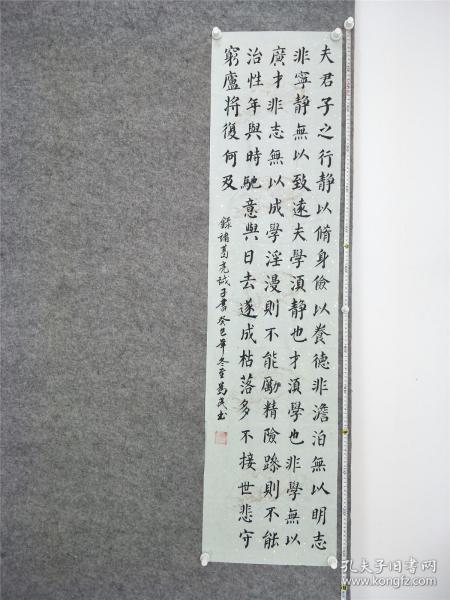 夫君子之行静以脩身儉以養德非澹泊無以明志
非寧静無以致遠夫學湏静也才湏學也非學無以
廣才非志無以成學淫漫則不能勵精險躁則不能
治性年與時馳意與日去遂成枯落多不接世悲守
窮廬將復何及
錄諸葛亮誡子書癸巳年冬至
孔夫子旧书网